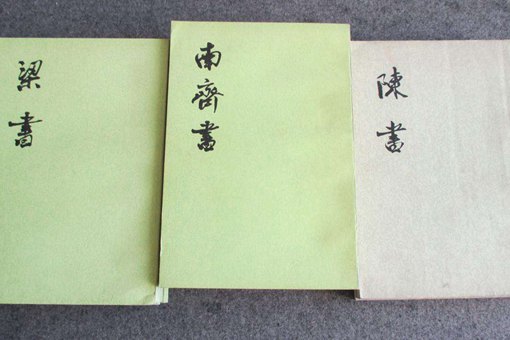 梁書
南齊書
陳書